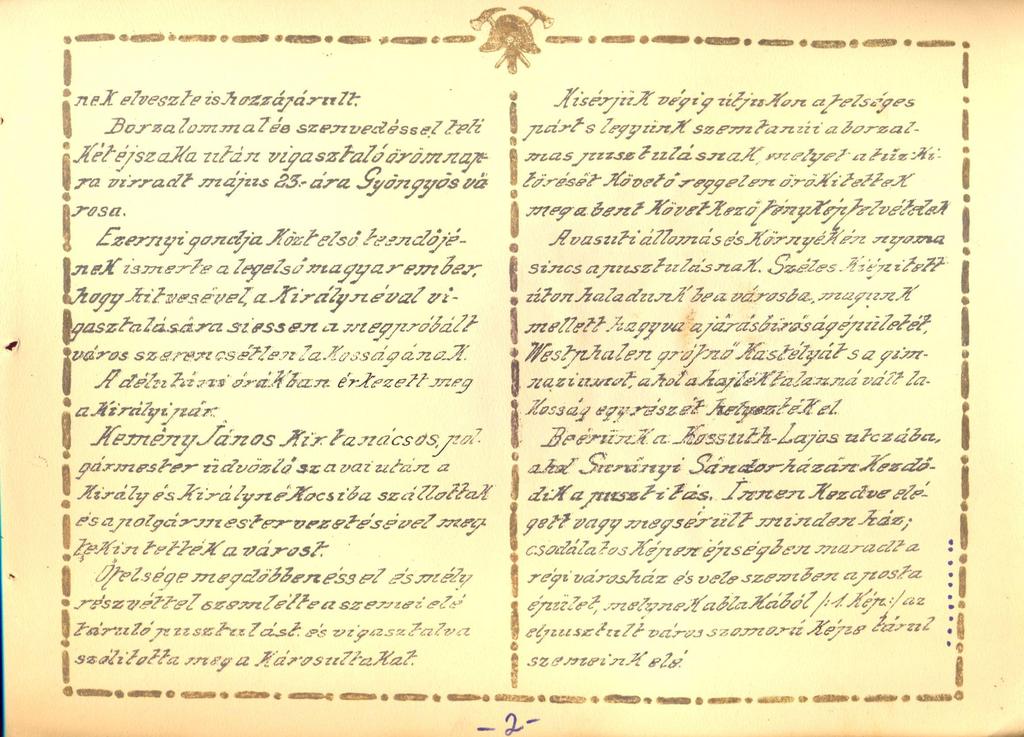 nek elveszte is hozzájárult.
Borzalommal és szenvedéssel teli
két éjszaka után vigasztaló örömnap-
ra virradt május 23.-ára Gyöngyös vá
rosa.
Ezernyi gondja közt első teendőjé-
nek ismerte a legelső magyar ember,
hogy hitvesével, a Királynéval vi-
gasztalására siessen a megpróbált
város szerencsétlen lakosságának.
A délutáni órákban érkezett meg
a Királyi pár.
Kemény János kir tanácsos, pol-
gármester üdvözlő szavai után a
Király és Királyné kocsiba szállottak
és a polgármester vezetésével meg-
tekintették a várost.
Őfelsége megdöbbenéssel és mély
részvéttel szemlélte a szemei elé
táruló pusztulást. és vigasztalva
szólitotta meg a károsultakat.
Kisérjük végig útjukon a felséges
párt s legyünk szemtanúi a borzal-
mas pusztulásnak, melyet a tűz ki-
törését követő reggelen örökitettek
meg a bent következő fényképfelvételek
A vasuti állomás és környékén nyoma
sincs a pusztulásnak. Széles kiépitett
úton haladunk be a városba, magunk
mellett hagyva a járásbiróság épületét,
Westphalen grófnő kastélyát s a gim-
naziumot, ahol a hajléktalanná vált la-
kosság egy részét helyezték el.
Beérünk a Kossuth-Lajos utczába,
ahol Surányi Sándor házán kezdő-
dik a pusztitás. Innen kezdve elé-
gett vagy megsérült minden ház;
csodálatos képen épségben maradt a
régi városház és vele szemben a posta
épület, melynek ablakából /:1. Kép:/ az
elpusztult város szomorú képe tárul
szemeink elé.
-2-